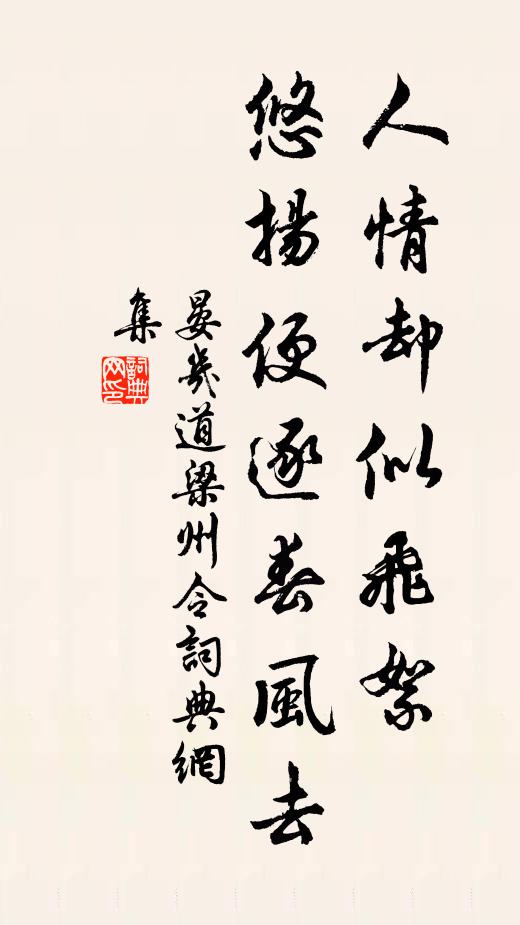 人情却似飛絮
悠揚便逐春風去
晏幾道梁州令詞典網
集
詞典網印